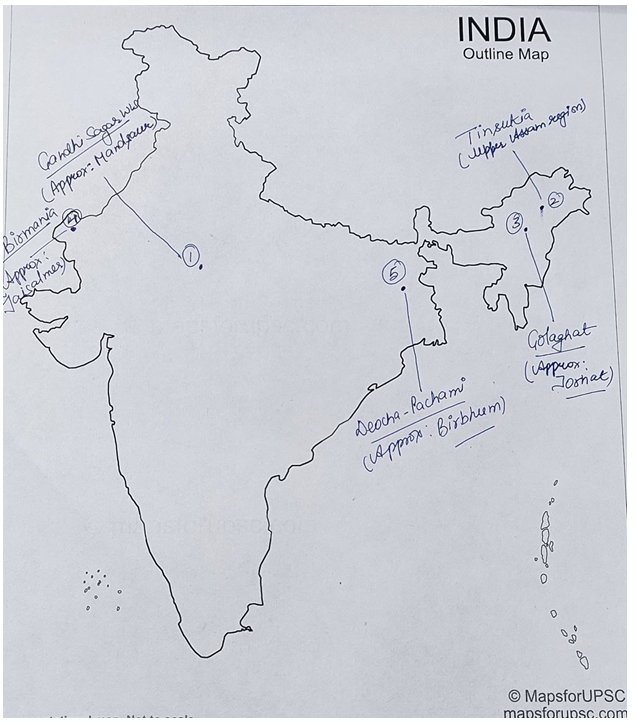 INDIA
Outline Map
Gandhi Sagar WLS
(Approx: Mandsaur)
Tinsukia
(Upper Assam region)
Birmania
(Approx:
Jaisalmer)
4
1
2
3
5
Golaghat
(Approx:
Jorhat)
Deocha-Pachami
(Approx: Birbhum)
© MapsforUPSC
mapsforupsc.com
Not to scale